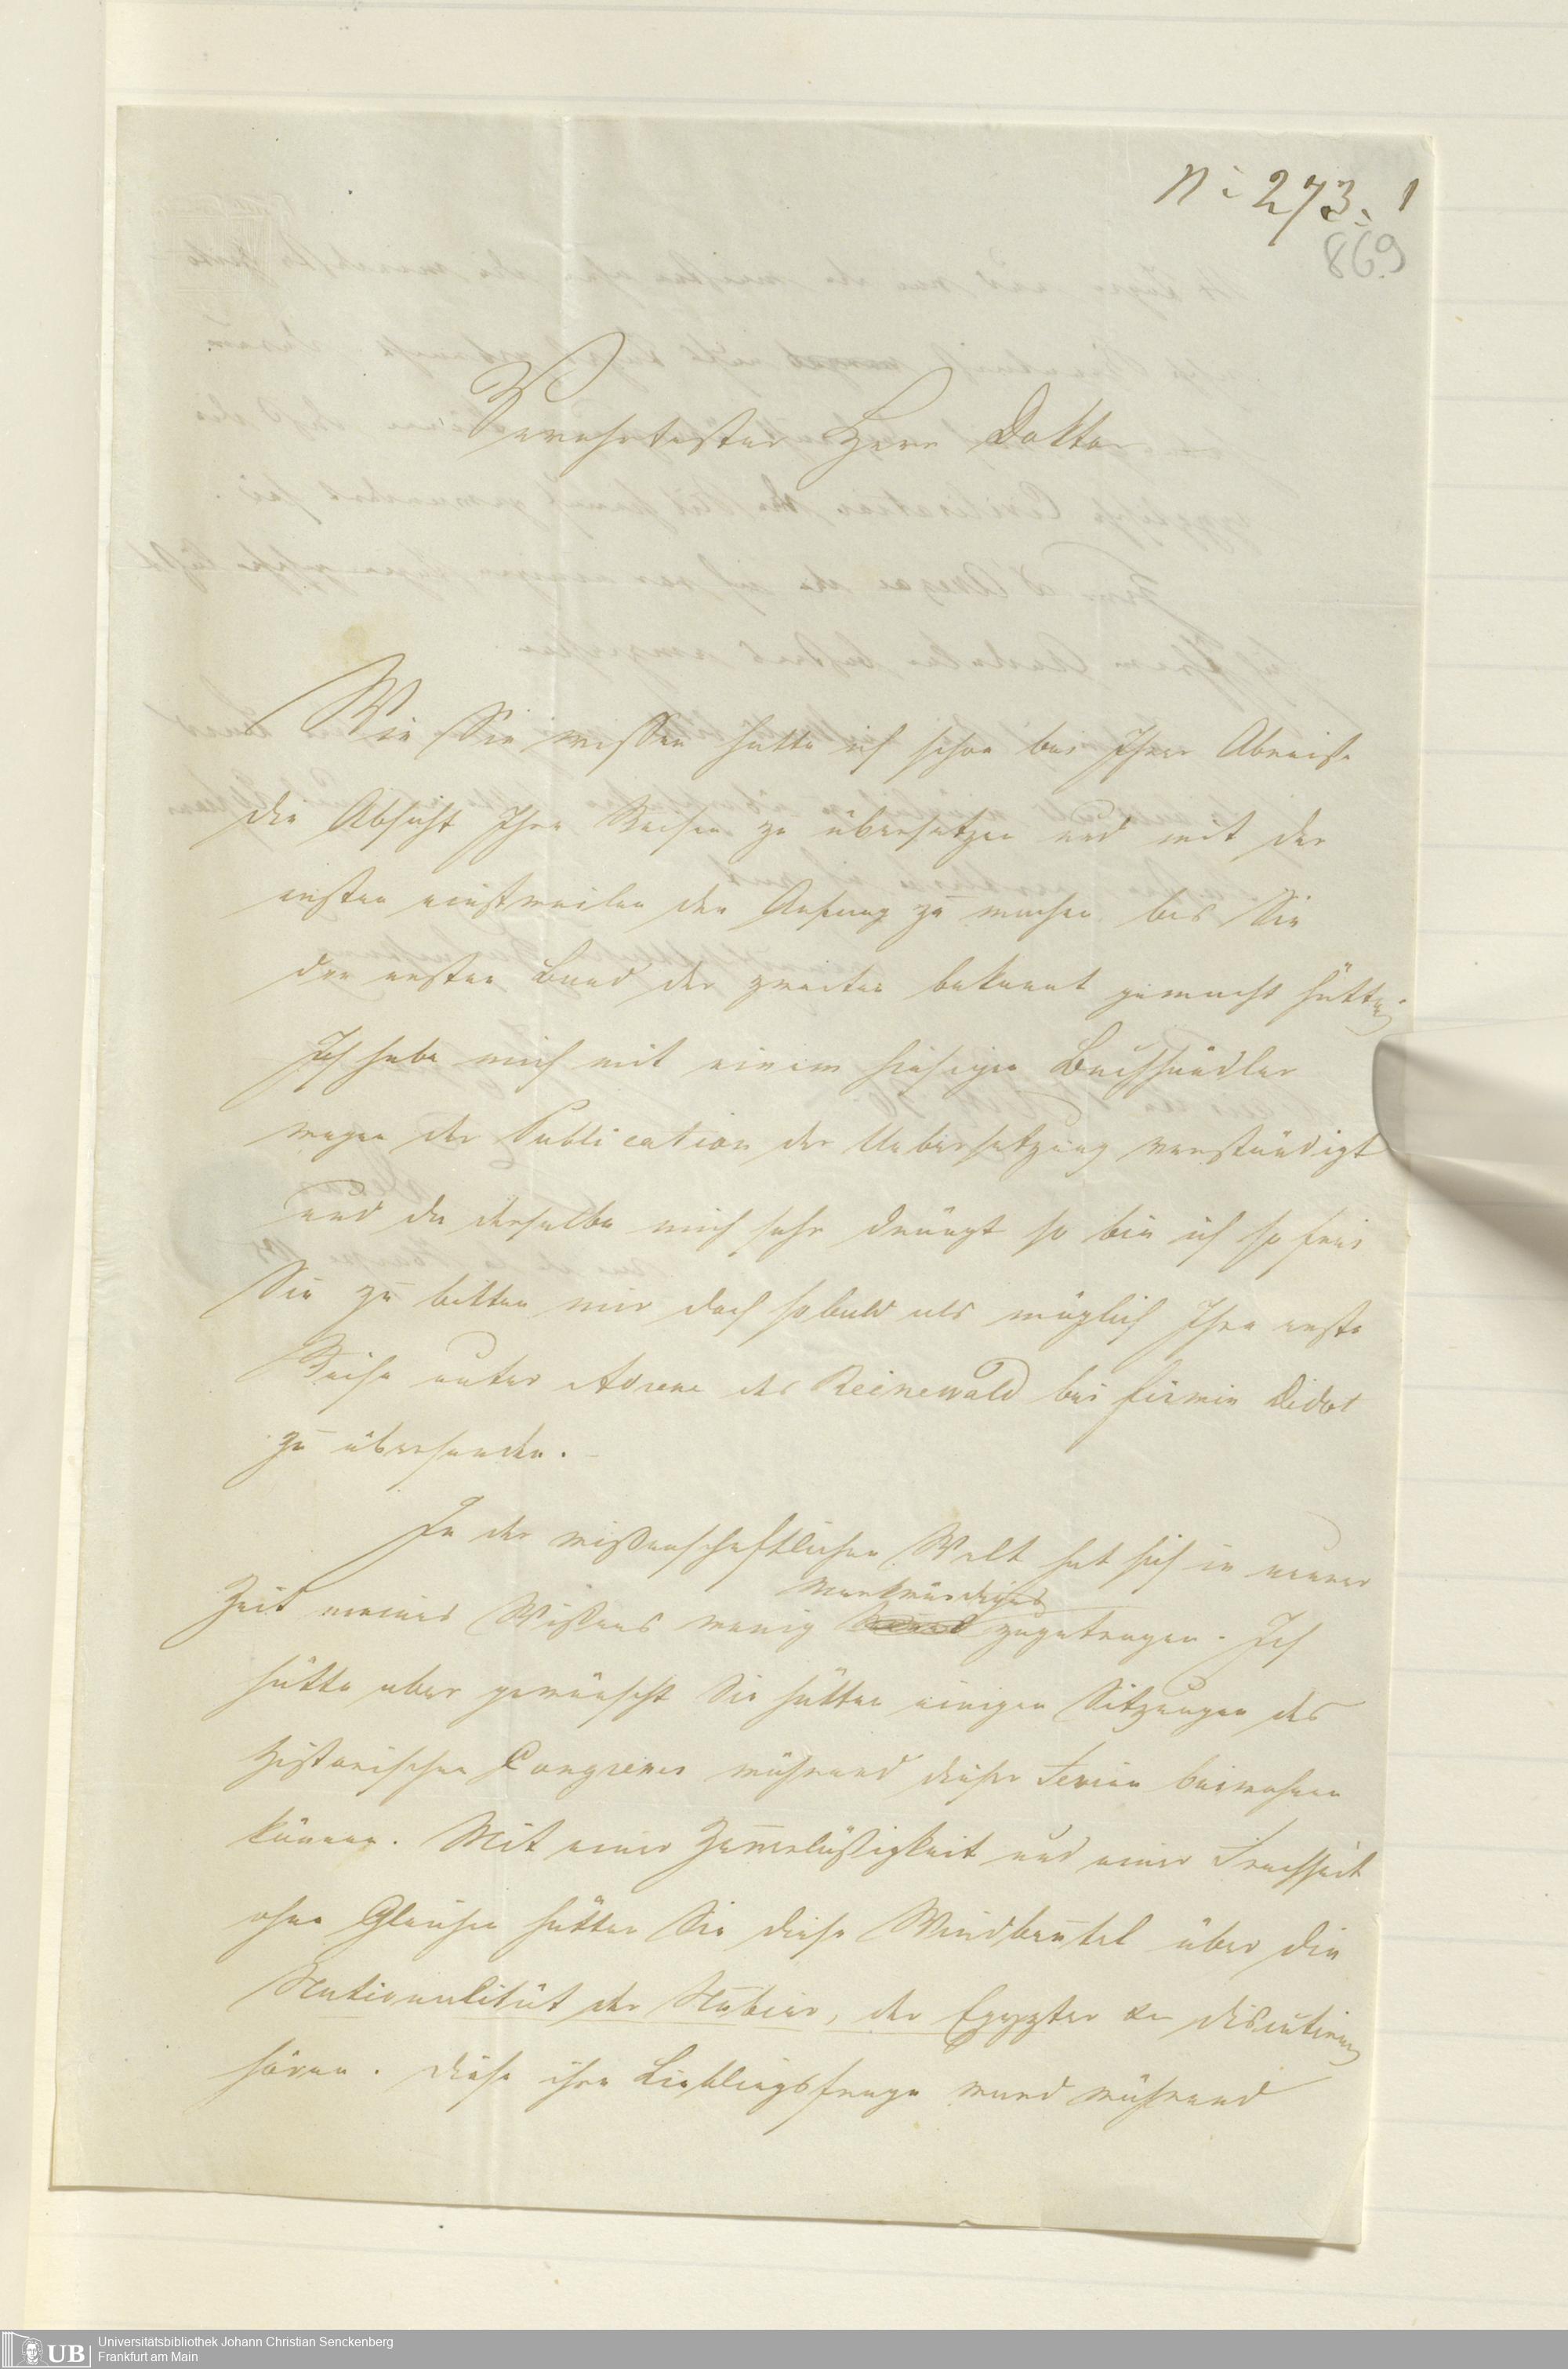 No 273. 1
869
Verehrtester Herr Doktor
Wie Sie wissen hatte ich schon bei Ihrer Abreise
die Absicht Ihre Reisen zu übersetzen und mit der
ersten einstweilen den Anfang zu machen bis Sie
den ersten Band der zweiten bekannt gemacht hätten.
Ich habe mich mit einem hiesigen Buchhändler
wegen der Publication der Uebersetzung verständigt
und da derselbe mich sehr drängt so bin ich so frei
Sie zu bitten mir doch sobald als möglich Ihre erste
Reise unter Adresse des Reinewald bei Firmin Didot
zu übersenden.
In der wißenschaftlichen Welt hat sich in neuerer
Merkwürdiges
Zeit meines Wißens wenig zugetragen. Ich
hätte aber gewünscht Sie hätten einigen Sitzungen des
historischen Congresses während dieser Session beiwohnen
können. Mit einer Zuverläßigkeit und einer Frechheit
ohne Gleichen hätten Sie diese Windbeutel über die
Nationalität der Nubier, der Egypter &c discutiren
hören. Diese ihre Lieblingsfrage ward während
Universitätsbibliothek Johann Christian Senckenberg
Frankfurt am Main
UB